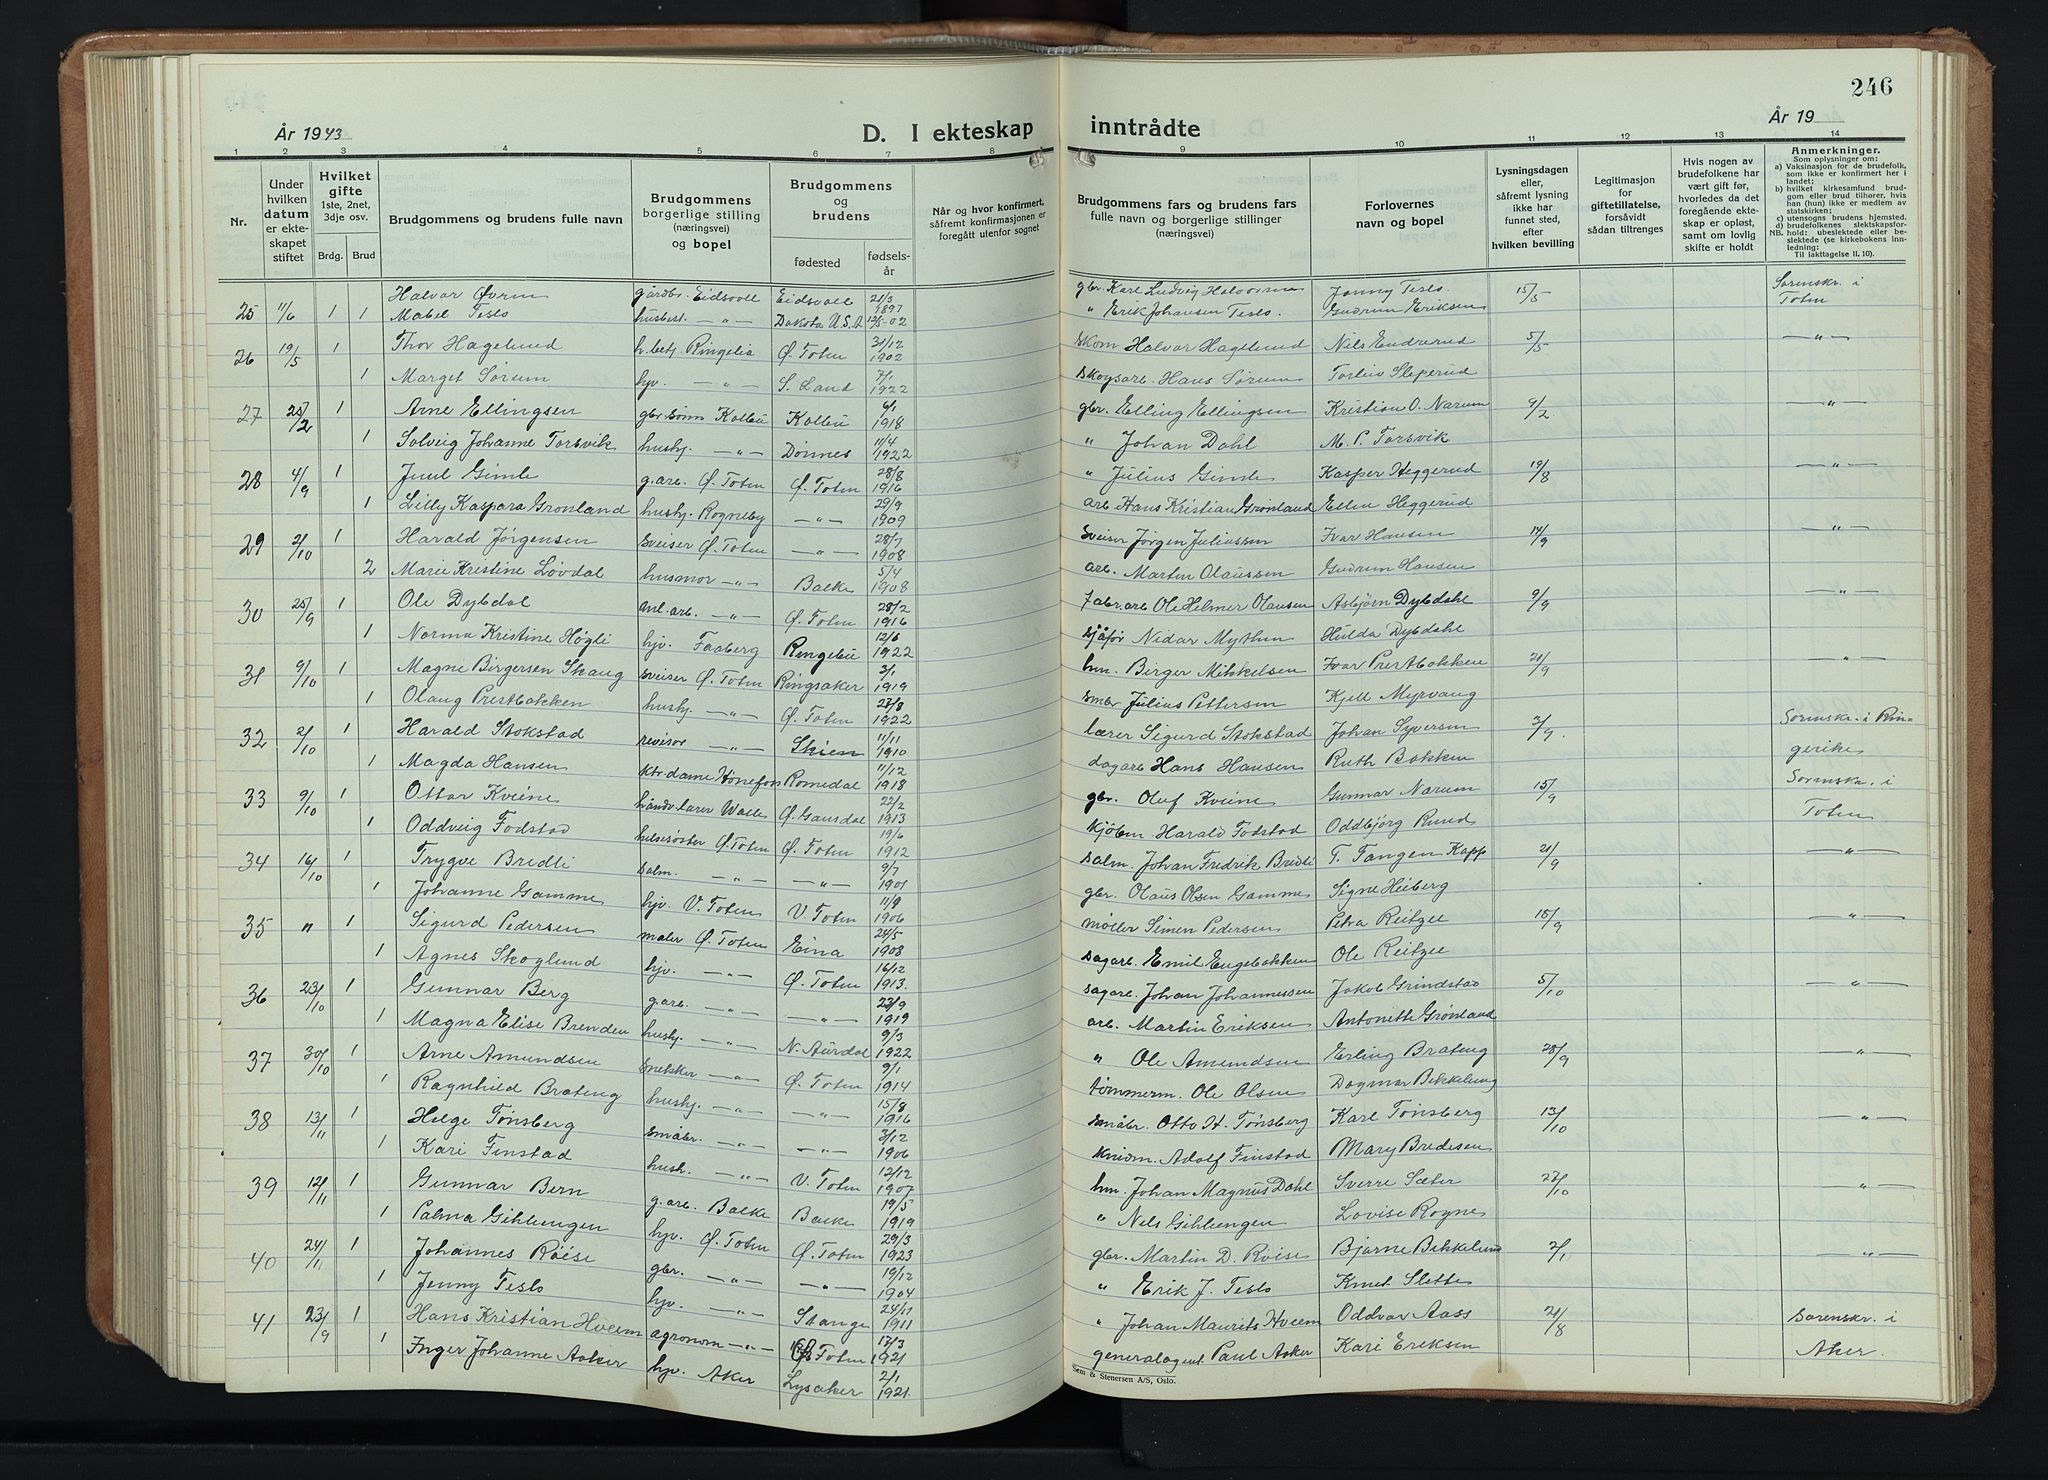 246
År 1943
D. I ekteskap
inntrådte
År 19
1 2 3 4 5 6 7 8 9 10 11 12 13 14
Nr.
Under hvilken datum er ekteskapet stiftet
Hvilket gifte 1ste, 2net, 3dje osv.
Brdg. Brud
Brudgommens og brudens fulle navn
Brudgommens borgerlige stilling (næringsvei) og bopel
Brudgommens og brudens
fødested
fødselsår
Når og hvor konfirmert, såfremt konfirmasjonen er foregått utenfor sognet
Brudgommens fars og brudens fars fulle navn og borgerlige stillinger (næringsvei)
Forlovernes navn og bopel
Lysningsdagen eller, såfremt lysning ikke har funnet sted, efter hvilken bevilling
Legitimasjon for giftetillatelse, forsåvidt sådan tiltrenges
Hvis nogen av brudefolkene har vært gift før, hvorledes da det foregående ekteskap er opløst, samt om lovlig skifte er holdt
Anmerkninger.
Som oplysninger om:
a) Vaksinasjon for de brudefolk, som ikke er konfirmert her i landet;
b) hvilket kirkesamfund brudgom eller brud tilhører, hvis han (hun) ikke er medlem av statskirken;
c) utensogns brudens hjemsted.
d) brudefolkenes slektskapsforhold: ubeslektede eller beslektede (se kirkebokens innledning:
NB.
Til iakttagelse II. 10).
25 11/6 1 Halvor Øvren gårdbr. Eidsvoll Eidsvoll 21/3 1897 gbr. Karl Ludvig Halvorsen Jenny Teslo 15/5 Sorenskr. i
1 Mabel Teslo husbest. —"— Dakota U.S.A 12/5-02 " Erik Johansen Teslo. Gudrun Eriksen Toten
26 19/5 1 Thor Hagelund Ringelia Ø. Toten 31/12 1902 skom Halvor Hagelund Nils Endrerud 5/5 —"—
1 Marget Sørum hjv. —"— S. Land 7/1 1922 skogsarb. Hans Sørum Torleiv Sleperud
27 25/2 1 Arne Ellingsen gbr.sønn Kolbu Kolbu 6/1 1918 gbr. Elling Ellingsen Kristian O. Narum 9/2 —"—
1 Solveig Johanne Torsvik hushj. —"— Dønnes 11/4 1922 " Johan Dahl M. P. Torsvik
28 4/9 1 Juul Gimle g.arb. Ø. Toten Ø. Toten 28/8 1916 " Julius Gimle Kasper Heggerud 19/8 —"—
1 Lilly Kaspara Grønland hushj. Rogneby —"— 29/9 1909 arb Hans Kristian Grønland Ellen Heggerud
29 2/10 1 Harald Jørgensen sveiser Ø. Toten —"— 28/7 1908 sveiser Jørgen Juliussen Ivar Hansen 14/9 —"—
2 Marie Kristine Løvdal husmor —"— Balke 5/4 1908 arb. Martin Olaussen Gudrun Hansen
30 25/9 1 Ole Dybdal anl.arb. —"— Ø. Toten 28/2 1916 fabr.arb Ole Helmer Olausen Asbjørn Dybdahl 9/9 —"—
1 Norma Kristine Høgli hjv. Faaberg Ringebu 12/6 1922 sjåfør Nidar Mythen Hulda Dybdahl
31 9/10 1 Magne Birgersen Skaug sveiser Ø. Toten Ringsaker 3/1 1919 hm. Birger Mikkelsen Ivar Prestbakken 21/9 —"—
1 Olaug Prestbakken hushj. —"— Ø. Toten 27/8 1922 småbr Julius Pettersen Kjell Myrvang
32 2/10 1 Harald Stokstad revisor —"— Skien 11/11 1910 lærer Sigurd Stokstad Johan Syversen 3/9. Sorenskr. i Rin-
1 Magda Hansen ktr.dame Hønefoss Romedal 11/12 1918 dagarb Hans Hansen Ruth Bakken gerike
33 9/10 1 Ottar Kveine håndv.lærer Ø. Gausdal 22/2 1913 gbr. Oluf Kveine Gunnar Narum 15/9 Sorenskr. i
1 Oddveig Fodstad helsesøster Ø. Toten Ø. Toten 19/6 1912 kjøbm. Harald Fodstad Oddbjørg Rund Toten
34 16/10 1 Trygve Bredli salm. —"— —"— 9/7 1901 salm. Johan Fredrik Bredli T. Tangen Kapp 21/9 —"—
1 Johanne Gamme hjv. V. Toten V. Toten 11/9 1906 gbr. Olaus Olsen Gamme Signe Heiberg
35 " 1 Sigurd Pedersen maler Ø. Toten Eina 24/5 1908 møller Simen Pedersen Petra Reitzel 15/9 —"—
1 Agnes Skoglund hjv. —"— Ø. Toten 16/12 1913. sagarb. Emil Engebakken Ole Reitzel
36 23/10 1 Gunnar Berg g.arb. —"— —"— 23/9 1919 sagarb. Johan Johannessen Jakob Grindstad 5/10 —"—
1 Magna Elise Brenden hushj. —"— N. Aurdal 9/3 1922 arb. Martin Eriksen Antonette Grønland
37 30/10 1 Arne Amundsen snekker —"— Ø. Toten 9/1 1914 " Ole Amundsen Erling Brateng 28/9 —"—
1 Ragnhild Brateng hushj. —"— —"— 15/8 1916 tømmerm. Ole Olsen Dagmar Bikkelung
38 13/11 1 Helge Tønsberg småbr. —"— —"— 3/12 1906 småbr. Otto H. Tønsberg Karl Tønsberg 13/10 —"—
1 Kari Finstad hush. —"— V. Toten 12/12 1907 Adolf Finstad Mary Bredesen
39 12/11 1 Gunnar Bern g. arb. Balke Balke 19/5 1919 hm. Johan Magnus Dahl Sverre Sæter 27/10 —"—
1 Palma Gihlengen hjv. Ø. Toten Ø. Toten 29/3 1923 " Nils Gihlengen Lovise Rogne
40 24/11 1 Johannes Røise gbr. —"— —"— 19/12 1904 gbr. Martin D. Røise Bjarne Bikkelund 2/11 —"—
1 Jenny Teslo hjv. —"— Stange 24/11 1911 " Erik J. Teslo Knut Slette
41 23/9 1 Hans Kristian Hveem agronom —"— Ø. Toten 17/3 1921 " Johan Maurits Hveem Oddvar Aass 21/8 Sorenskr. i
1 Inger Johanne Aaker hjv. Aker Lysaker 2/1 1921. generalagent Paul Aaker Kari Eriksen Aker.
Sem & Stenersen A/S, Oslo.